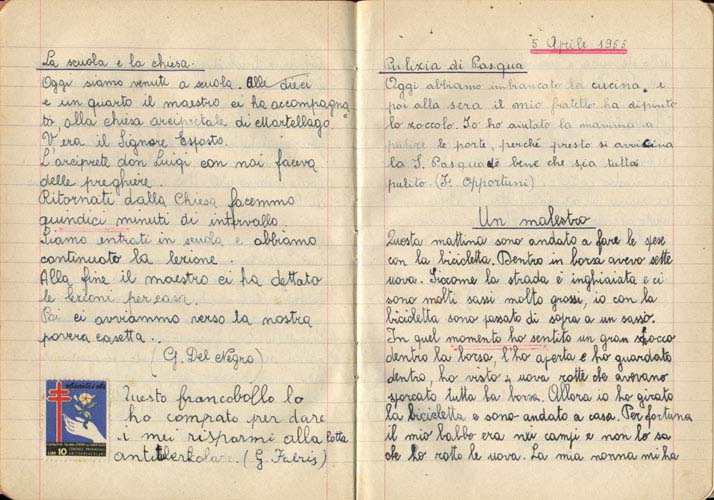 La scuola e la chiesa.
Oggi siamo venuti a scuola. Alle dieci
e un quarto il maestro ci ha accompagna
to alla chiesa arcipretale di Martellago.
V'era il Signore Esposto.
L'arciprete don Luigi con noi faceva
delle preghiere.
Ritornati dalla Chiesa facemmo
quindici minuti di intervallo.
Siamo entrati in scuola e abbiamo
continuato la lezione.
Alla fine il maestro ci ha dettato
le lezioni per casa.
Poi ci avviammo verso la nostra
povera casetta..
(G. Del Negro)
LIRE 10
Questo francobollo lo
ho comprato per dare
i miei risparmi alla lotta
antitubercolare. (G. Faeris)
5 Aprile 1955
Pulizia di Pasqua
Oggi abbiamo imbiancato la cucina e
poi alla sera il mio fratello ha dipinto
lo zoccolo. Io ho aiutato la mamma a
pulire le porte, perché presto si avvicina
la S. Pasqua ed è bene che sia tutto
pulito. (F. Opportuni)
Un malestro
Questa mattina sono andato a fare le spese
con la bicicletta. Dentro in borsa avevo sette
uova. Siccome la strada è inghiaiata e ci
sono molti sassi molto grossi, io con la
bicicletta sono passato di sopra a un sasso.
In quel momento ho sentito un gran
dentro la borsa, l'ho aperta e ho guardato
dentro, ho visto 4 uova rotte che avevano
sporcato tutta la borsa. Allora io ho girato
la bicicletta e sono andato a casa. Per fortuna
il mio babbo era nei campi e non lo sa
che ho rotto le uova. La mia nonna mi ha